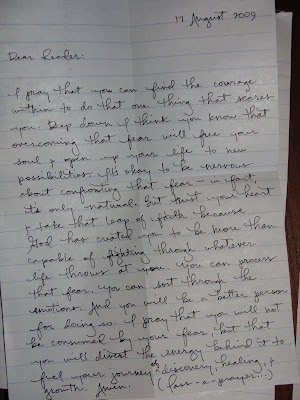 17 August 2009
Dear Reader:
I pray that you can find the courage
within to do that one thing that scares
you. Deep down I think you know that
overcoming that fear will free your
soul & open up your life to new
possibilities. It's okay to be nervous
about confronting that fear – in fact,
it's only natural. But trust your heart
& take that leap of faith because
God has created you to be more than
capable of fighting through whatever
life throws at you. You can process
that fear. You can sort through the
emotions. And you will be a better person
for doing so. I pray that you will not
be consumed by your fear but that
you will divert the energy behind it to
fuel your journey of discovery, healing, &
growth. Amen. (Pass-a-prayer...)